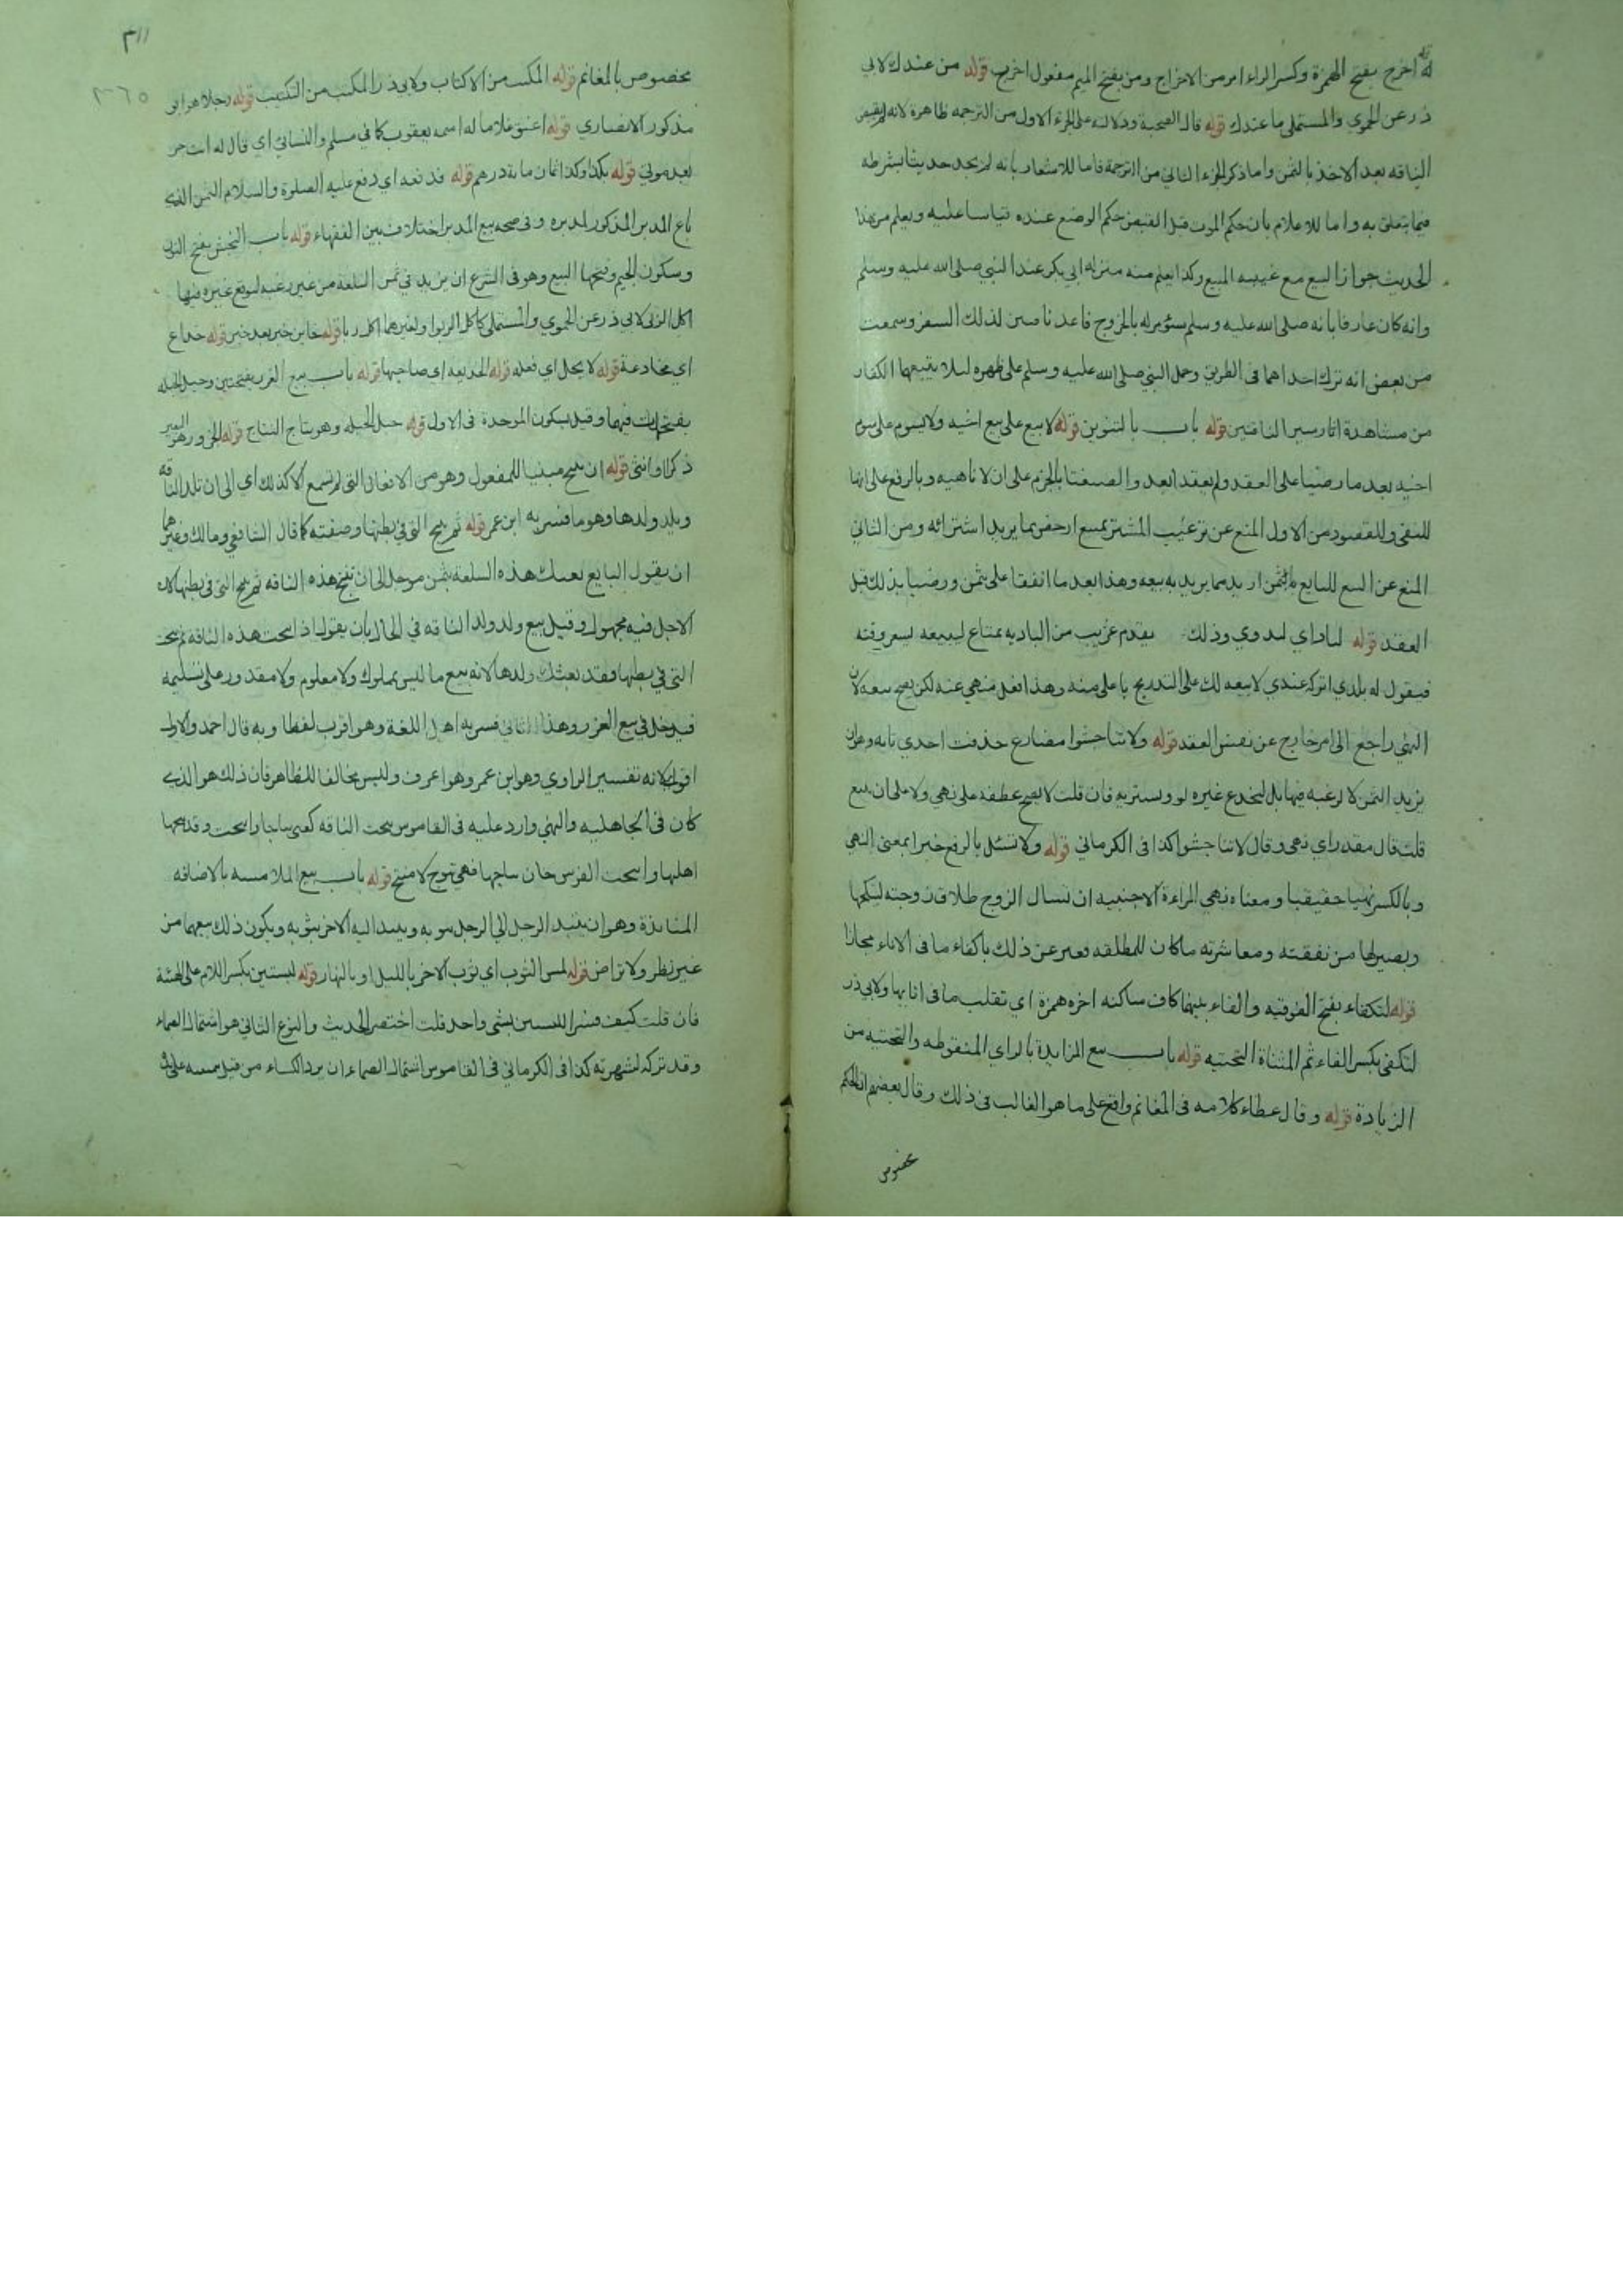 قوله اخرج بفتح الهمزة وكسر الراء امر من الاخراج ومن بفتح الميم مفعول اخرج قوله من عندك لابي
ذر عن الحموي والمستملي ما عندك قوله قال الصحبة ودلالته على الجزء الاول من الترجمه ظاهرة لانه لم يقبض
الناقه بعد الاخذ بالثمن واما ذكر الجزء الثاني من الترجمة فاما للاشعار بانه لم يجد حديثا بشرطه
فيما يتعلق به واما للاعلام بان حكم الموت قبل القبض حكم الوضع عنده قياسا عليه ويعلم من هذا
الحديث جواز البيع مع غيبه المبيع وكذا يعلم منه منزله ابي بكر عند النبي صلى الله عليه وسلم
وانه كان عارفا بانه صلى الله عليه وسلم سيؤمر له بالخروج فاعد ناقتين لذلك السفر وسمعت
من بعض انه ترك احداهما في الطريق وحمل النبي صلى الله عليه وسلم على ظهره ليلا يتبعهما الكفار
من مشاهدة اثار سير الناقتين قوله باب بالتنوين قوله لا يبيع على بيع اخيه ولا يسوم على سوم
اخيه بعد ما رضيا على العقد ولم يعقد العقد والصيغتا بالجزم على ان لا ناهيه وبالرفع على انها
للنفي والمقصود من الاول المنع عن ترغيب المشتر ببيع ارخص بما يريد اشترائه ومن الثاني
المنع عن البيع للبايع بالثمن ازيد مما يريد به بيعه وهذا بعد ما اتفقا على ثمن ورضيا بذلك قبل
العقد قوله لباد اي لبدوي وذلك يقدم غريب من الباديه بمتاع ليبيعه بسعر وقته
فيقول له بلدي اتركه عندي لابيعه لك على التدريج باعلى منه وهذا فعل منهي عنه لكن يصح بيعه لان
النهي راجع الى امر خارج عن نفس العقد قوله ولا تناجشوا مضارع حذفت احدي تايه وهو ان
يزيد الثمن لا لرغبه فيها بل ليخدع غيره ليشتريه فان قلت لا يصح عطفه على نهي ولا على ان يبيع
قلت قال مقدر اي نهى وقال لا تناجشوا كذا في الكرماني قوله ولا تسئل بالرفع خبرا بمعنى النهي
وبالكسر نهيا حقيقيا ومعناه نهي المراءة الاجنبيه ان تسال الزوج طلاق زوجته لينكحها
ويصير لها من نفقته ومعاشرته ما كان للمطلقه فعبر عن ذلك باكفاء ما في الاناء مجازا
قوله لتكفاء بفتح الفوقيه والفاء بينهما كاف ساكنه اخره همزة اي تقلب ما في انايها ولابي ذر
لتكفي بكسر الفاء ثم المثناة التحتيه قوله باب بيع المزايدة بالزاي المنقوطه والتحتيه من
الزيادة قوله وقال عطاء كلامه في المغانم واقع على ما هو الغالب في ذلك وقال بعضهم الحكم
مخصوص
٣١١
٢٦٥
مخصوص بالمغانم قوله المكتب من الاكتاب ولابي ذر المكتب من التكتيب قوله رجلا هو ابو
مذكور الانصاري قوله اعتق غلاما له اسمه يعقوب كما في مسلم والنسائي اي قال له انت حر
بعد موتي قوله بكذا وكذا ثمان ماية درهم قوله فدفعه اي دفع عليه الصلوة والسلام الثمن الذي
باع المدبر المذكور لمدبره وفي صحه بيع المدبر اختلاف بين الفقهاء قوله باب النجش بفتح النون
وسكون الجيم وفتحها البيع وهو في الشرع ان يزيد في ثمن السلعة من غير رغبه ليوقع غيره فيها
اكل الربا لابي ذر عن الحموي والمستملي كاكل الربوا ولغيرهما اكل ربا قوله خاين خبر بعد خبر قوله خداع
اي مخادعة قوله لا يحل اي فعله قوله الخديعه اي صاحبها قوله باب بيع الغرر بفتحتين وحبل الحبله
بفتحات فيهما وقيل بسكون الموحدة في الاول قوله حبل الحبله وهو نتاج النتاج قوله الجزور هو البعير
ذكرا وانثى قوله ان تنتج مبنيا للمفعول وهو من الافعال التي لم تسمع الا كذلك اي الى ان تلد الناقه
ويلد ولدها وهو ما فسر به ابن عمر قوله ثم تنتج التي في بطنها وصفته كما قال الشافعي ومالك وغيرهما
ان يقول البايع بعتك هذه السلعة بثمن موجل الى ان تنتج هذه الناقه ثم تنتج التي في بطنها لان
الاجل فيه مجهول وقيل بيع ولد ولد الناقه في الحال بان يقول اذا نتجت هذه الناقه ثم نتجت
التي في بطنها فقد بعتك ولدها لانه بيع ما ليس بملوك ولا معلوم ولا مقدور على تسليمه
فيدخل في بيع الغرر وهذا الثاني فسر به اهل اللغة وهو اقرب لفظا وبه قال احمد والاول
اقوى لانه تفسير الراوي وهو ابن عمر وهو اعرف وليس مخالفا للظاهر فان ذلك هو الذي
كان في الجاهليه والنهي وارد عليه في القاموس نتجت الناقه كعني نتاجا وانتجت وقد نتجها
اهلها وانتجت الفرس حان نتاجها فهي نتوج لا منتج قوله باب بيع الملامسه بالاضافه
المنابذة وهو ان ينبذ الرجل الى الرجل بثوبه وينبذ اليه الاخر بثوبه ويكون ذلك بيعهما من
غير نظر ولا تراض قوله لمس الثوب اي ثوب الاخر بالليل او بالنهار قوله لبستين بكسر اللام على الهيئة
فان قلت كيف فسر اللبستين بشي واحد قلت اختصر الحديث والنوع الثاني هو اشتمال الصماء
وقد تركه لشهرته كذا في الكرماني في القاموس اشتمال الصماء ان يرد الكساء من قبل يمينه على يده